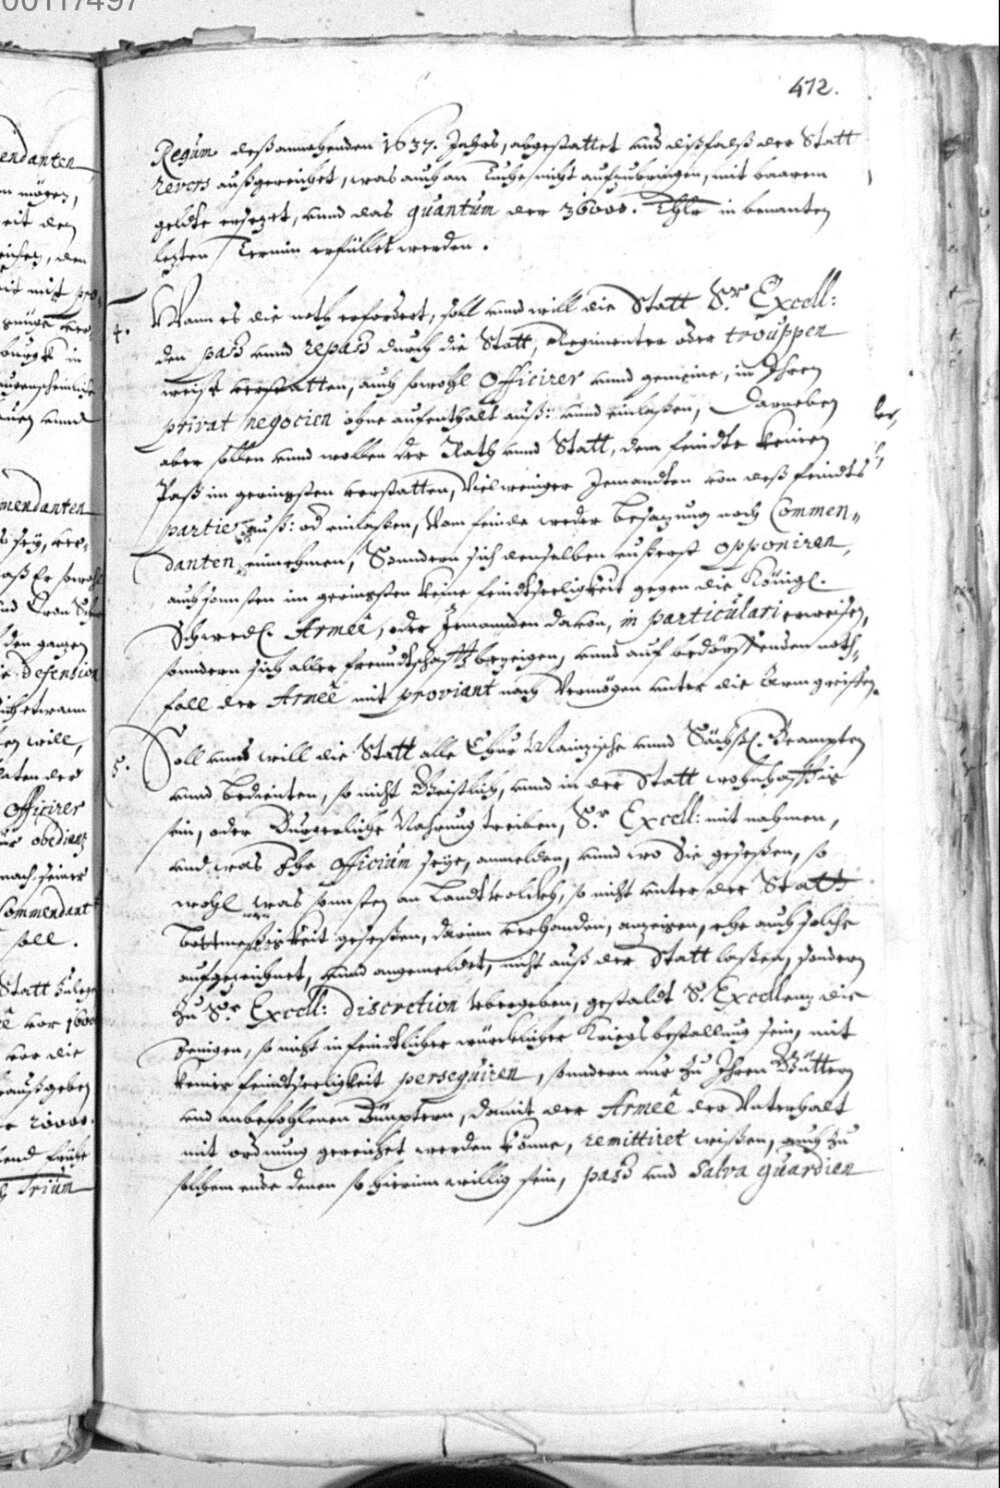 00117497
412.
Regum deß annahenden 1637. Jahrs, abgestattet und dißfalß der Statt
revers außgereichet, was auch an Tuche nicht aufzubringen, mit baarem
gelde ersezet, unnd das quantum der 36000. Thlr in benanten
lezten Termin erfüllet werden.
4. Wann es die noth erfordert, soll unnd will die Statt Sr. Excell:
den paß unnd repaß durch die Statt, Regimenter oder trouppen
weiße verstatten, auch sowohl Officirer unnd gemeine, in Ihren
privat negocien ohne aufenthalt auß: unnd einlaßen, Darneben
aber sollen unnd wollen der Rath unnd Statt, dem feindte keinen
Paß im geringsten verstatten, Vielweniger Jemandten von deß feindts
partie auß: od einlaßen, Vom feinde weder besazung noch Commen-
danten einnehmen, Sondern sich denselben eußerst opponiren,
auch sonnsten im geringsten keine feindtseeligkeit gegen die Königl.
Schwed. Armeê, oder Jemanden davon, in particulari erweisen,
sondern sich aller freundtschafft bezeigen, unnd auf bedörffenden noth-
fall der Armeê mit proviant nach Vermögen unter die Arm greiffen.
5. Soll unnd will die Statt alle Chur Mainzische unnd Sächß. Beampten
unnd bedienten, so nicht Geistlich, unnd in der Statt wohnhafftig
sein, oder Burgerliche Nahrung treiben, Sr. Excell: mit nahmen,
und was Ihr officium seye, anmelden, unnd wo Sie geseßen, so
wohl was sonnsten an Landtvolckh, so nicht unter der Statt
bottmeßigkeit geseßen, darinn verhanden, anzeigen, ehe auch solche
aufgezeichnet, unnd angemeldet, nicht auß der Statt laßen, sondern
zu Sr. Excell: discretion ubergeben, gestaldt S. Excellenz die
Jenigen, so nicht in feindtlicher würcklicher Kriegsbestallung sein, mit
keiner feindtseeligkeit persequiren, sonndern nur zu Ihren Güttern
und anbefohlenen Ämptern, damit der Armeê der Unterhalt
mit ordnung gereichet werden könne, remittiret wißen, auch zu
solchem ende denen so hierinn willig sein, paß und Salva guardien